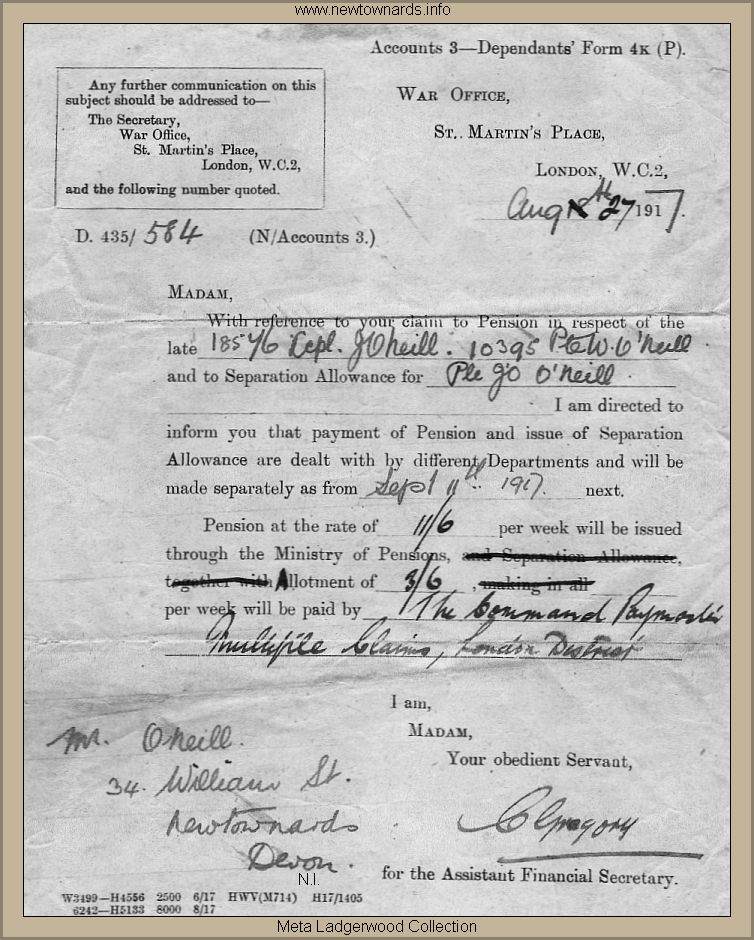 www.newtownards.info
Accounts 3—Dependants' Form 4K (P).
Any further communication on this
subject should be addressed to—
The Secretary,
War Office,
St. Martin's Place,
London, W.C.2,
and the following number quoted.
WAR OFFICE,
ST. MARTIN'S PLACE,
LONDON, W.C.2,
Aug 27th 1917.
D. 435/ 584 (N/Accounts 3.)
MADAM,
With reference to your claim to Pension in respect of the
late 18576 Lcpl. J O'neill. 10395 Pte W. O'Neill
and to Separation Allowance for Pte Jo O'Neill
I am directed to
inform you that payment of Pension and issue of Separation
Allowance are dealt with by different Departments and will be
made separately as from Sept 11th 1917. next.
Pension at the rate of 11/6 per week will be issued
through the Ministry of Pensions, and Separation Allowance,
together with Allotment of 3/6, making in all
per week will be paid by The Command Paymaster
Multiple Claims, London District
I am,
MADAM,
Your obedient Servant,
C Gregory
for the Assistant Financial Secretary.
Mr. O'neill.
34. William St.
Newtownards
Devon.
N.I.
W3499—H4556 2500 6/17 HWV(M714) H17/1405
6242—H5133 8000 8/17
Meta Ladgerwood Collection